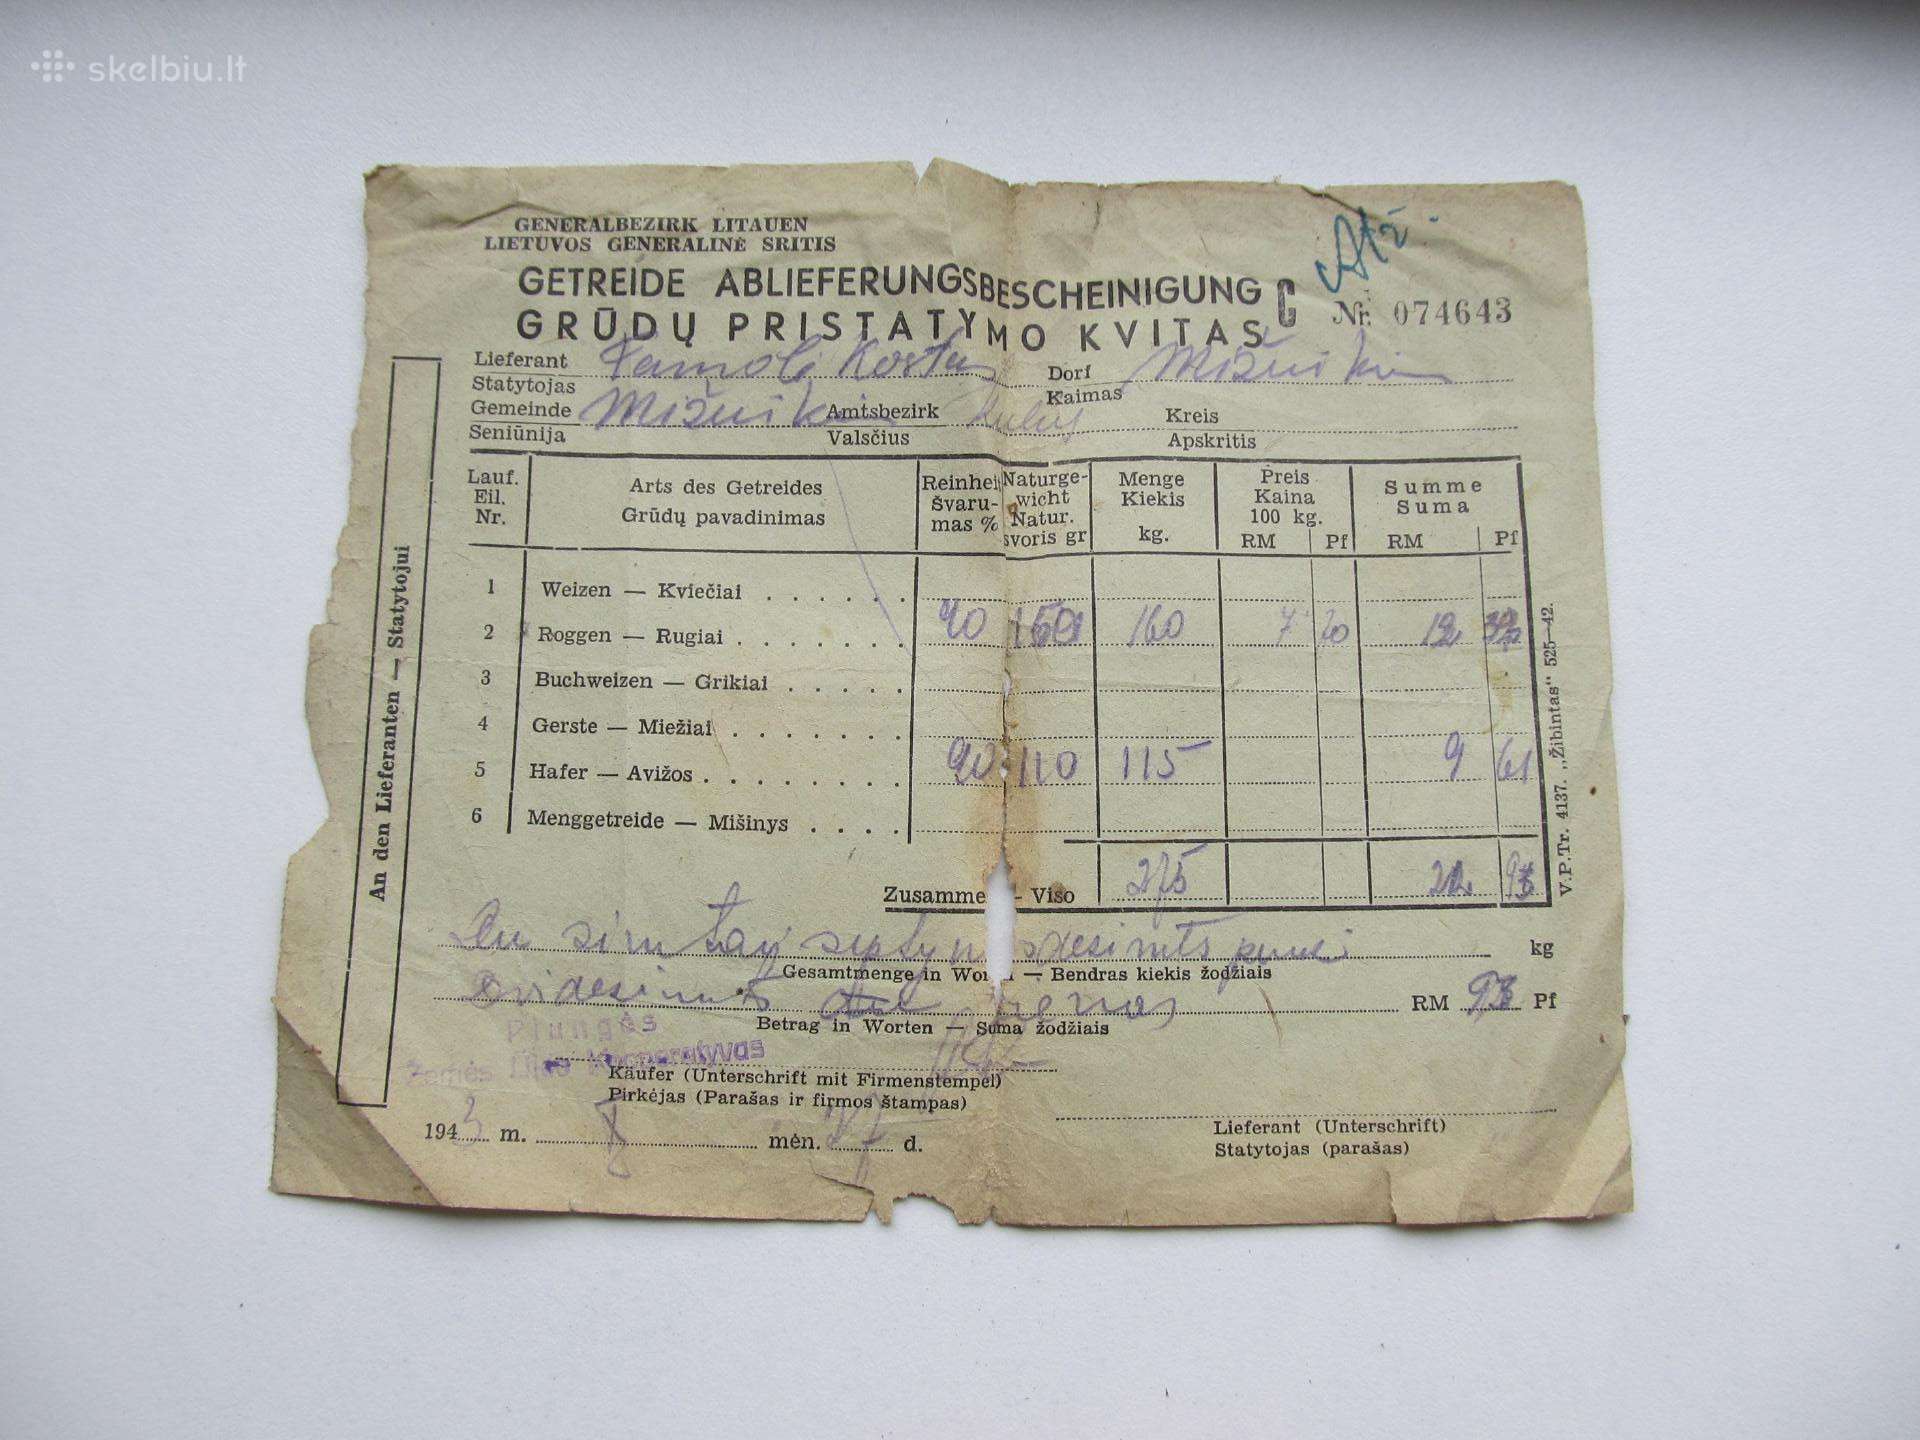 skelbiu.lt
GENERALBEZIRK LITAUEN
LIETUVOS GENERALINĖ SRITIS
GETREIDE ABLIEFERUNGSBESCHEINIGUNG
GRŪDŲ PRISTATYMO KVITAS
G Nr. 074643
Lieferant Kostas Dorf
Statytojas Kaimas
Gemeinde Amtsbezirk Kreis
Seniūnija Valsčius Apskritis
An den Lieferanten — Statytojui
Lauf. Eil. Nr.
Arts des Getreides
Grūdų pavadinimas
Reinheit Švarumas %
Naturgewicht Natur. svoris gr
Menge Kiekis kg.
Preis Kaina 100 kg. RM Pf
Summe Suma RM Pf
1 Weizen — Kviečiai
2 Roggen — Rugiai 90 160 7 20
3 Buchweizen — Grikiai
4 Gerste — Miežiai
5 Hafer — Avižos 90 110 115 9 61
6 Menggetreide — Mišinys
Zusamme — Viso 275
Du šimtai kg
Gesamtmenge in Wor — Bendras kiekis žodžiais
vienas RM 93 Pf
Betrag in Worten — Suma žodžiais
Plungės
Žemės Ūkio Kooperatyvas
Käufer (Unterschrift mit Firmenstempel)
Pirkėjas (Parašas ir firmos štampas)
1943 m. X mėn. 27 d.
Lieferant (Unterschrift)
Statytojas (parašas)
V.P.Tr. 4137. „Žibintas" 525—42.